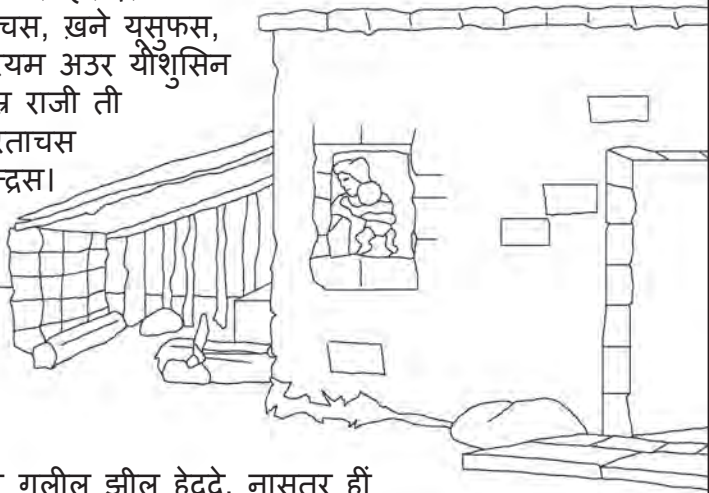 चस, ख़ने यूसुफस,
यम अउर यीशुसिन
राजी ती
ताचस
न्द्रस।
गलील झील हेद्दे, नासतर हीं